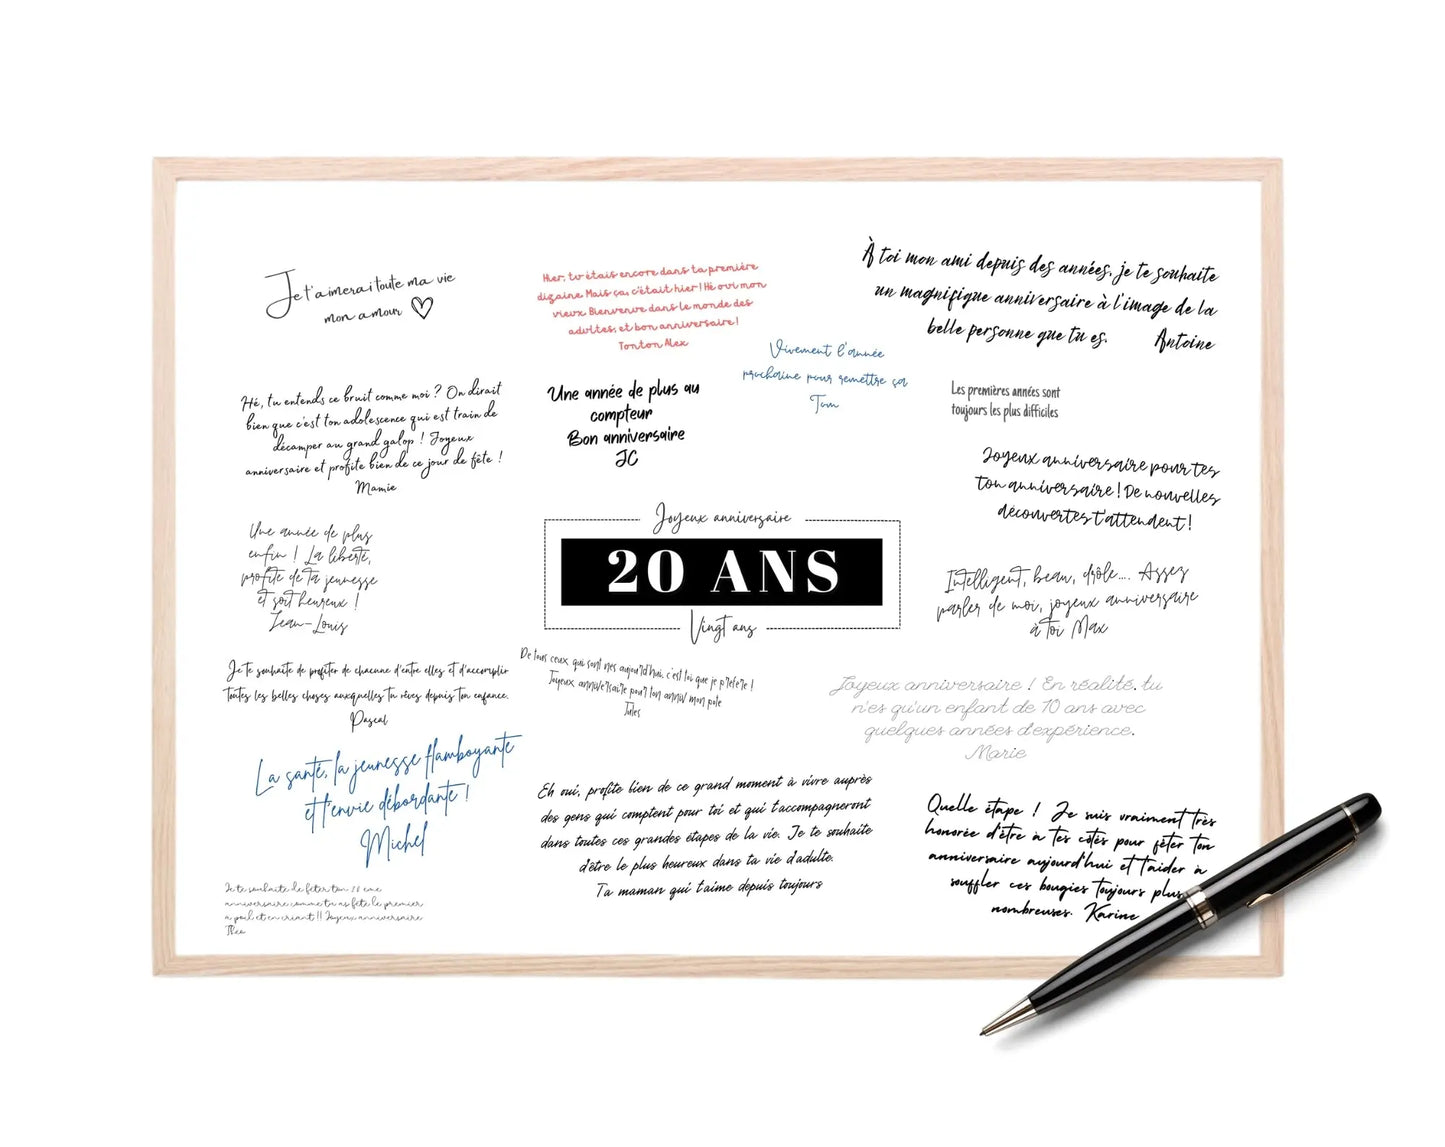 Je t'aimerai toute ma vie
mon amour
Hier, tu étais encore dans ta première
dizaine. Mais ça, c'était hier ! Hé oui mon
vieux. Bienvenue dans le monde des
adultes, et bon anniversaire !
Tonton Alex
À toi mon ami depuis des années, je te souhaite
un magnifique anniversaire à l'image de la
belle personne que tu es. Antoine
Vivement l'année
prochaine pour remettre ça
Tom
Hé, tu entends ce bruit comme moi ? On dirait
bien que c'est ton adolescence qui est train de
décamper au grand galop ! Joyeux
anniversaire et profite bien de ce jour de fête !
Mamie
Une année de plus au
compteur
Bon anniversaire
JC
Les premières années sont
toujours les plus difficiles
Joyeux anniversaire pour tes
ton anniversaire ! De nouvelles
découvertes t'attendent !
Une année de plus
enfin ! La liberté,
profite de ta jeunesse
et soit heureux !
Jean-Louis
Joyeux anniversaire
20 ANS
Vingt ans
Intelligent, beau, drôle.... Assez
parler de moi, joyeux anniversaire
à toi Max
Je te souhaite de profiter de chacune d'entre elles et d'accomplir
toutes les belles choses auxquelles tu rêves depuis ton enfance.
Pascal
De tous ceux qui sont nés aujourd'hui, c'est toi que je préfère !
Joyeux anniversaire pour ton anniv mon pote
Jules
Joyeux anniversaire ! En réalité, tu
n'es qu'un enfant de 10 ans avec
quelques années d'expérience.
Marie
La santé, la jeunesse flamboyante
et l'envie débordante !
Michel
Eh oui, profite bien de ce grand moment à vivre auprès
des gens qui comptent pour toi et qui t'accompagneront
dans toutes ces grandes étapes de la vie. Je te souhaite
d'être le plus heureux dans ta vie d'adulte.
Ta maman qui t'aime depuis toujours
Quelle étape ! Je suis vraiment très
honorée d'être à tes côtés pour fêter ton
anniversaire aujourd'hui et t'aider à
souffler ces bougies toujours plus
nombreuses. Karine
Je te souhaite de fêter ton 18 eme
anniversaire comme tu as fêté le premier
a poil et en criant !! Joyeux anniversaire